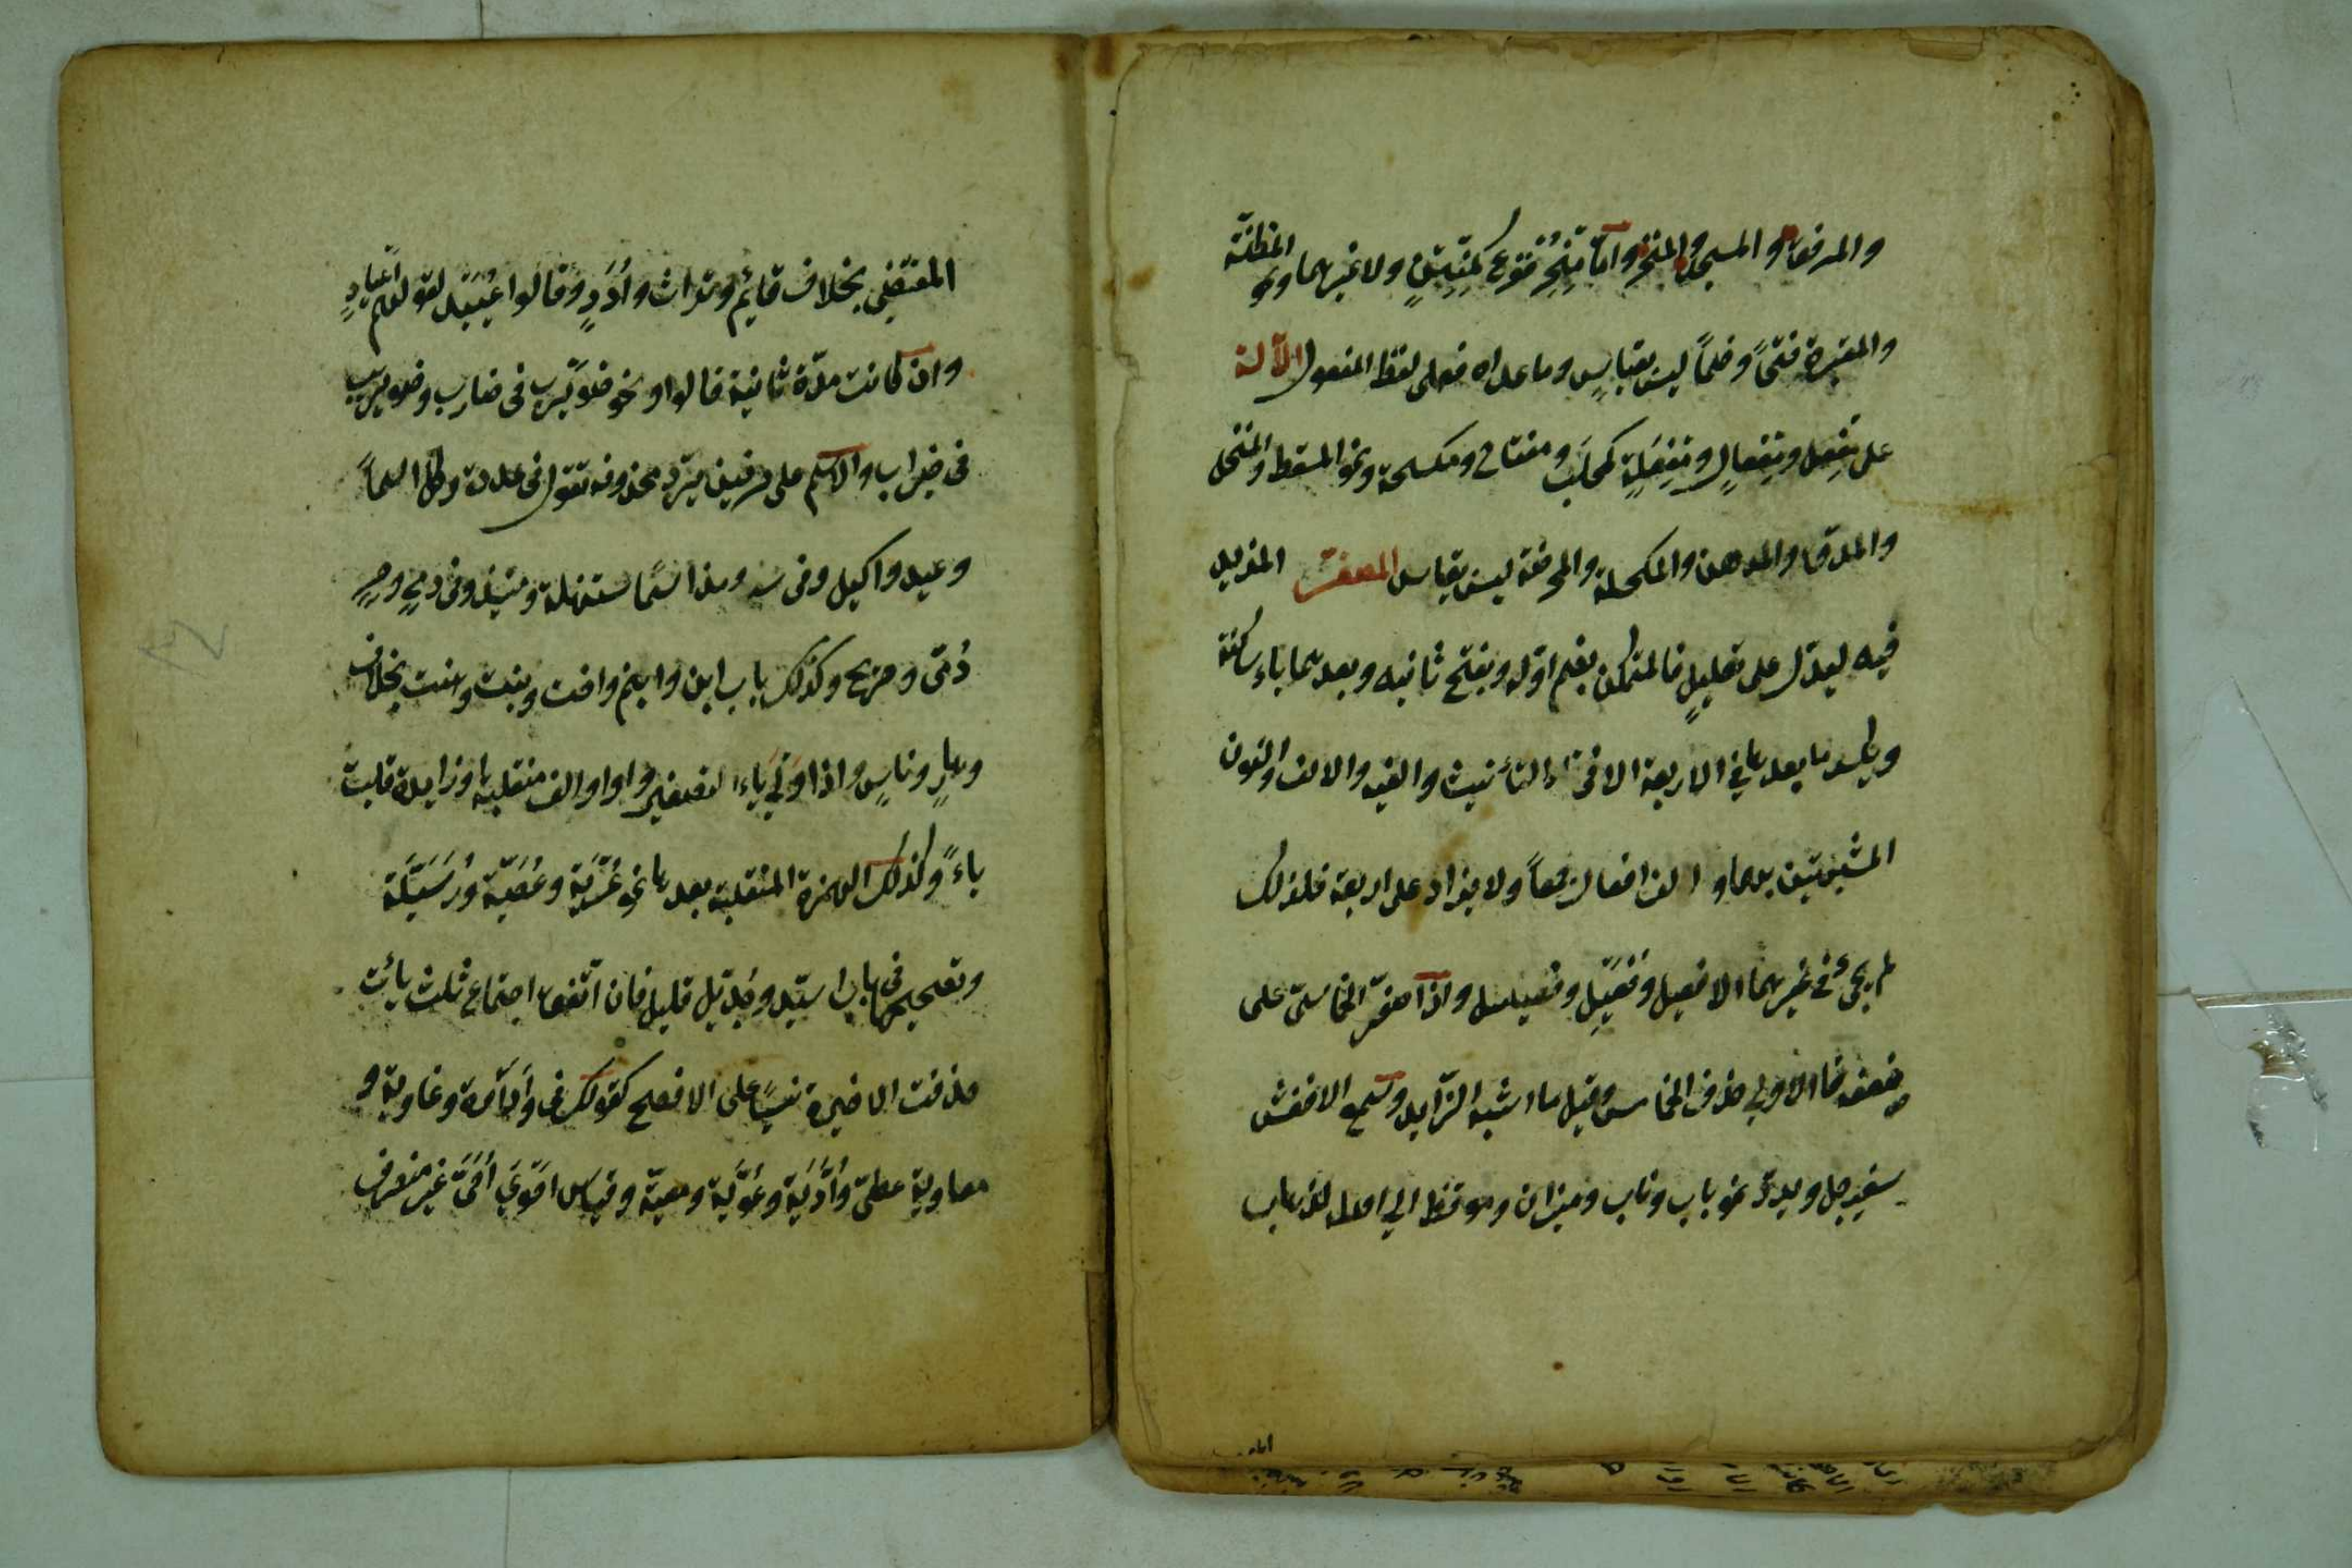 والمرفق والمسجد والمنخر وامّا مِنْخِر ففرع كمِنْتِنٍ ولا غيرهما ونحو المظنّة
والمقبرة فتحًا وضمًّا ليس بقياسٍ وما عداه فعلى لفظ المفعول الآلة
على مِفْعل ومِفْعالٍ ومِفْعَلةٍ كمحلَب ومفتاح ومكسحة ونحو المسقط والمنخل
والمدق والمدهن والمكحلة والمحرضة ليس بقياس المصغر المزيد
فيه ليدل على تقليلٍ فالمتمكن يضم اوّله ويفتح ثانيه وبعدهما ياء ساكنة
ويكسر ما بعدها في الاربعة الا في تاء التأنيث والفيه والالف والنون
المشبهتين بهما والف افعال جمعاً ولا يزاد على اربعة فلذلك
لم يجئ في غيرهما الا فعيل وفُعَيْعِل وفعيعيل واذا صغّر الخماسىّ على
ضعفه فالاولى حذف الخامس وقيل ما اشبه الزّايد وسمع الاخفش
سفيرجل ويردّ نحو باب وناب وميزان وموقظ الى اصله لذهاب
المقتضِى بخلاف قائم وتراث واُدَدٍ وقالوا عُيَيْد لقولهم اَعْيادٍ
وان كانت مدّة ثانية فالواو نحو ضُوَيرب فى ضارب وضويريب
فى ضيراب والاسم على حرفين يردّ محذوفه تقول فى عدة وكل اسماً
وعيد واكيل وفى سه ومذ اسمًا ستيهة ومنيذ وفى دمٍ وحِرٍ
دُمَىّ وحريح وكذلك باب ابن واسم واخت وبنت وهنت بخلاف
وهارٍ وناسٍ واذا وَلِىَ ياء التصغير واو او الف منقلبة او زايدة قلبت
ياءً وكذلك الهمزة المنقلبة بعدها نحو عُرَيّة وعُصَيّة ورُسَيّلَة
وتصحيحها فى باب اسيّد وجُديّل قليل فان اتّفق اجتماع ثلث يائت
حذفت الاخيرة نسيًا على الافصح كقولك فى عطاءٍ واداوة وغاوية و
معاوية عطىّ واُدَيّة وغُوَيّة ومعيّة وقياس احوى اُحَىّ غير منصرف